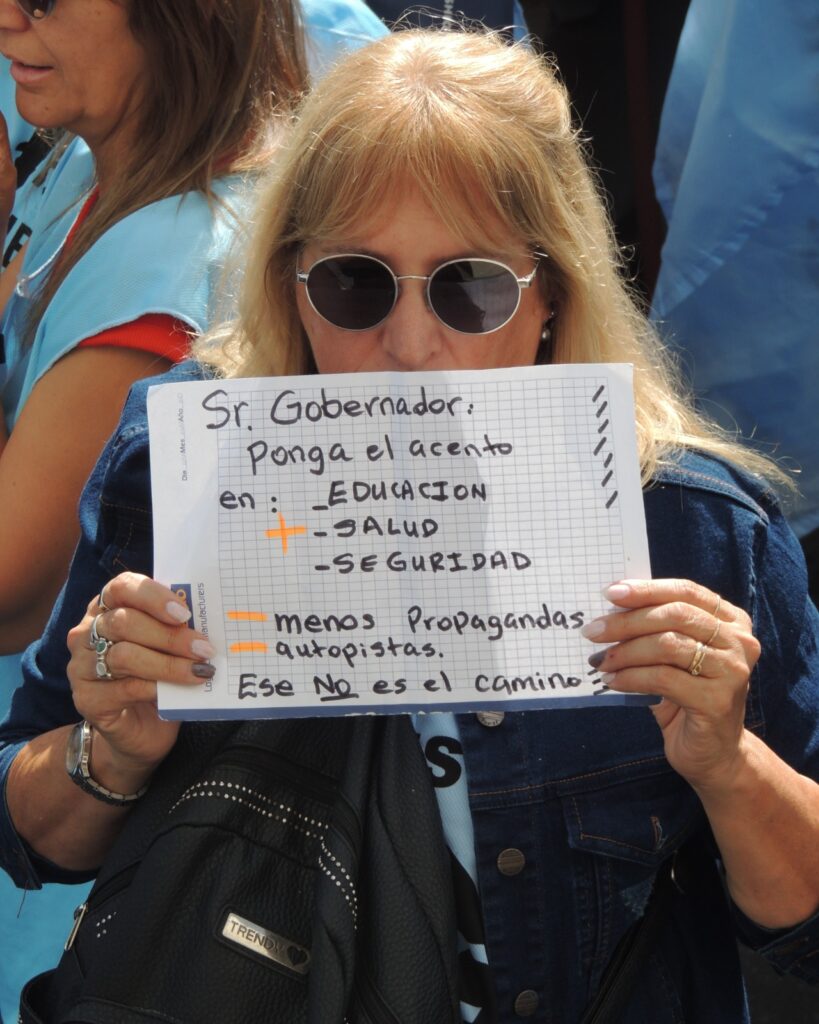 Sr. Gobernador:
Ponga el acento
en: - EDUCACION
+ - SALUD
- SEGURIDAD
- menos Propagandas
- autopistas.
Ese NO es el camino
Día Mes Año
TREND